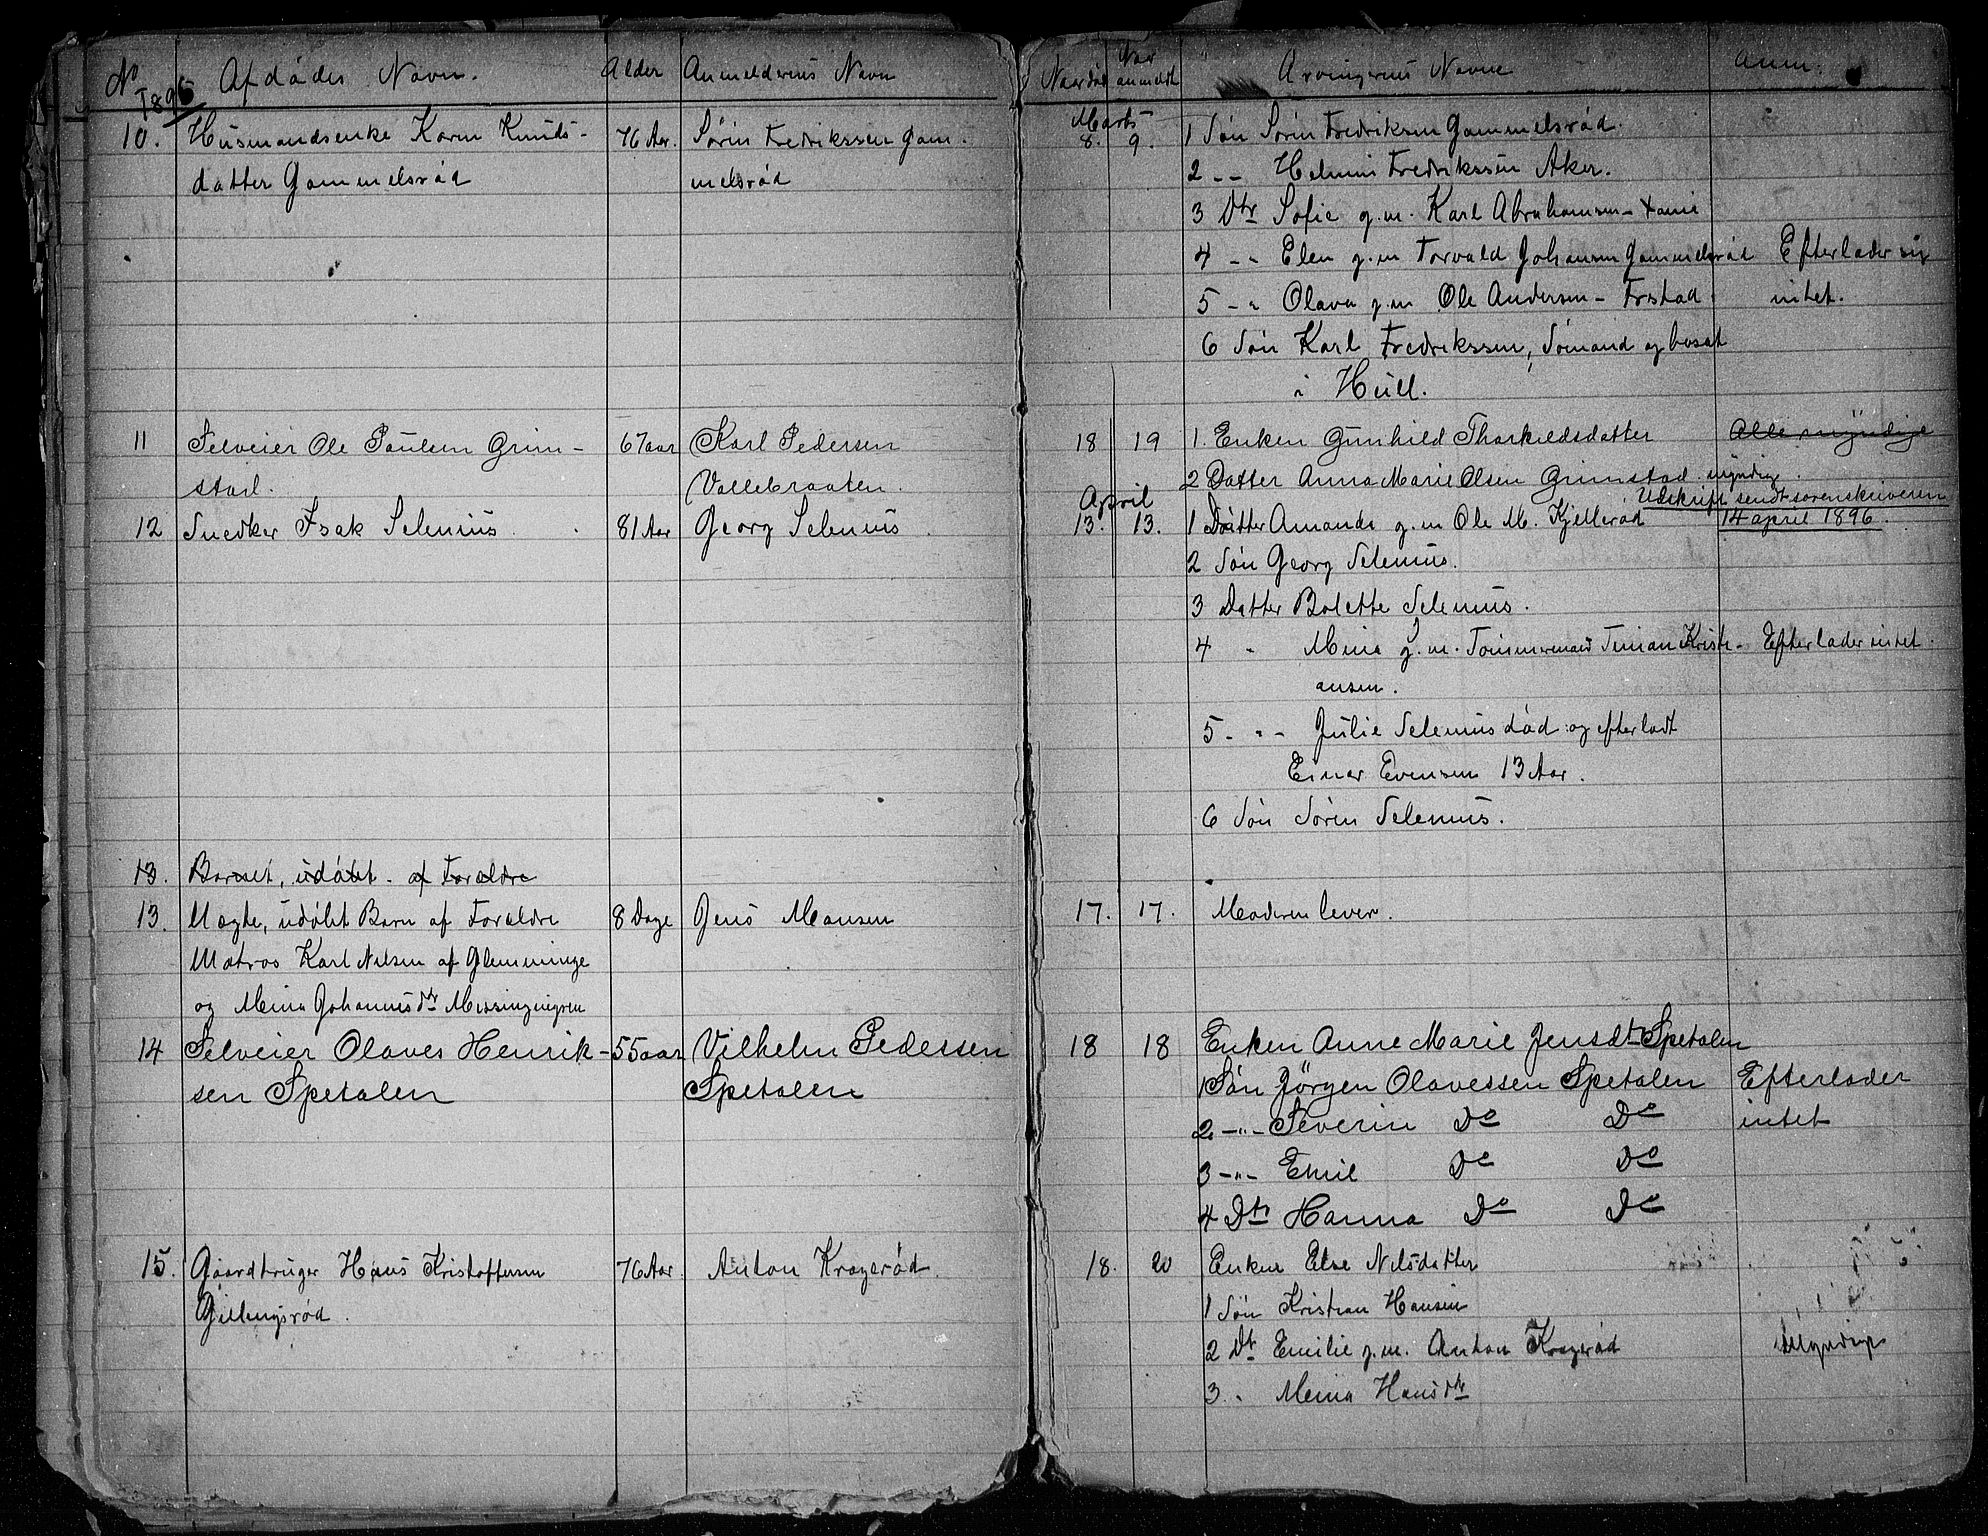 No Afdødes Navn. Alder Anmelderens Navn
1896
10. Husmandsenke Karen Knuds- 76 Aar. Søren Fredrikssen Gam.
datter Gammelsrød melsrød
11 Selveier Ole Paulsen Grim- 67 aar Karl Pedersen
stad. Vallebraaten.
12 Snedker Isak Selenius 81 Aar Georg Selenius
13. Barnet, udøbt. af Forældre
13. Mægte, udøbt Barn af Forældre 8 Dage Jens Hansen
Matros Karl Nilsen af Glemminge
og Mina Johannesdtr
14 Selveier Olaves Henrik- 55 aar Vilhelm Pedersen
sen Spetalen Spetalen
15. Gaardbruger Hans Kristoffersen 76 Aar. Anton Kragerød.
Gillengsrød.
Naar død Naar anmeldt Arvingernes Navne Anm.
Marts
8. 9. 1 Søn Søren Fredriksen Gammelsrød.
2 -- Helmin Fredrikssen Aker.
3 Dtr Sofie g.m. Karl Abrahamsen -
4 -- Elen g.m Torvald Johansen Gammelsrød Efterlader sig
5 -- Olava g.m Ole Andersen - Frstad. intet.
6 Søn Karl Fredrikssen, Sømand og bosat
i Hull.
18 19 1. Enken Gunhild Tharkildsdatter Alle myndige
2 Datter Anna Marie Olsen Grimstad myndig.
April Udskrift sendt sorenskriveren
13. 13. 1 Datter Amanda g.m Ole M. Kjellerød 14 april 1896.
2 Søn Georg Selenius.
3 Datter Bolette Selenius.
4 " Mina g.m. Tømmermand Timan Kristi- Efterlader intet.
ansen.
5 - " - Julie Selenius død og efterladt
Einar Evensen 13 Aar.
6 Søn Søren Selenius.
17. 17. Moderen lever.
18 18 Enken Anne Marie Jensdt Spetalen
1 Søn Jörgen Olavessen Spetalen Efterlader
2 -"- Severin Do Do intet
3 -"- Emil Do Do
4 Dtr Hanna Do Do
18. 20 Enken Else Nilsdatter
1 Søn Kristian Hansen
2 Dt Emilie g.m. Anton Kragerød Myndige
3 " Mina Hansdtr